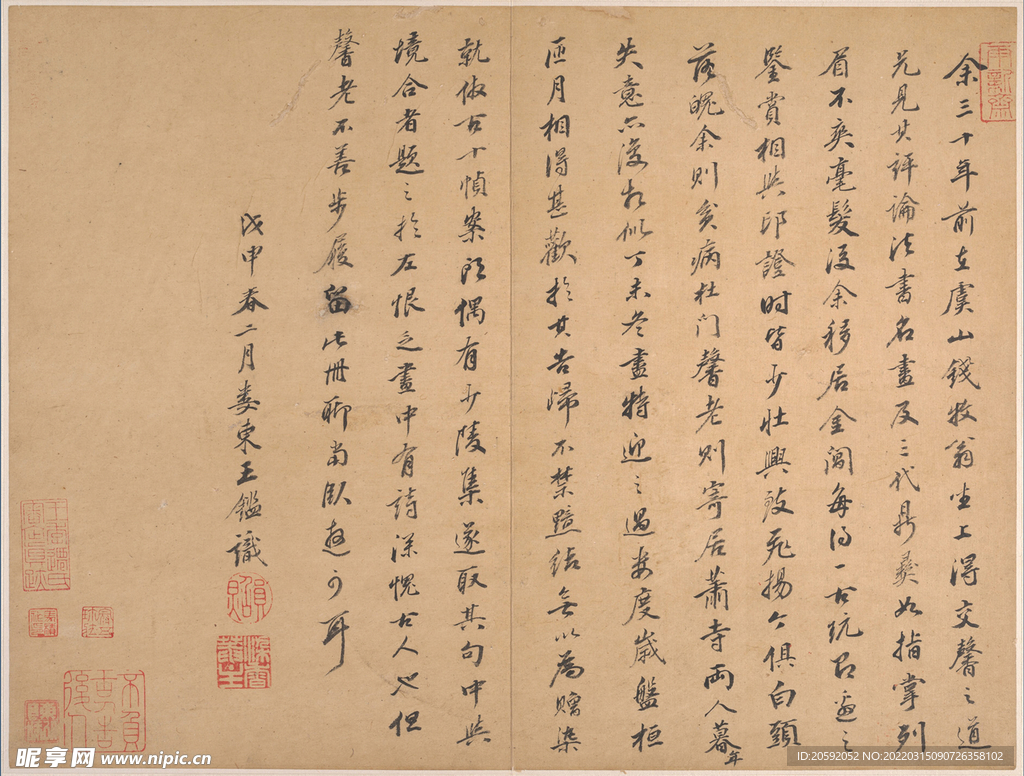 余三十年前在虞山錢牧翁坐上得交馨之道
兄見其評論法書名畫及三代鼎彝如指掌列
眉不爽毫髮後余移居金閶每得一古玩邀之
鑒賞相與印證時皆少壯興致飛揚今俱白頭
落魄余則貧病杜門馨老則寄居蕭寺兩人暮年
失意亦復相似丁未冬盡特迎之過婁度歲盤桓
匝月相得甚歡於其告歸不禁黯結無以為贈染
執倣古十幀案頭偶有少陵集遂取其句中與
境合者題之於左恨乏畫中有詩深愧古人也但
馨老不善步履留此冊聊當臥遊可耳
戊申春二月婁東王鑑識
不負古人告後人
昵享网 www.nipic.cn
ID:20592052 NO:20220315090726358102